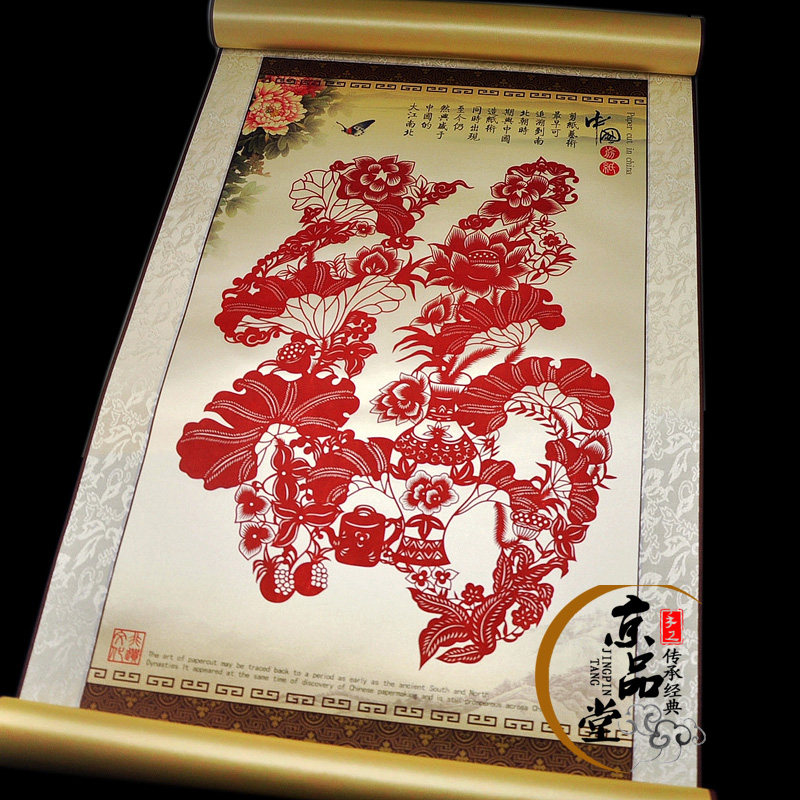 中國
剪紙
Paper cut in china
剪紙藝術
最早可
追溯到南
北朝時
期與中國
造紙術
同時出現
至今仍
然興盛于
中國的
大江南北
文化
The art of papercut may be traced back to a period as early as the ancient South and North
Dynasties It appeared at the same time of discovery of Chinese papermaking and is still prosperous across
京品堂
JINGPIN
TANG
手工
传承经典